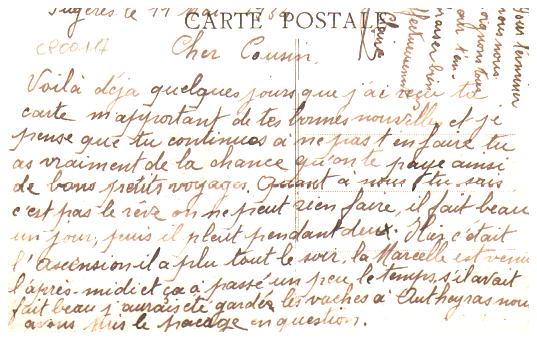 Fugères le 11 Mai 193
CARTE POSTALE
CP0017
Cher Cousin,
Voilà déja quelques jours que j'ai reçu ta
carte m'apportant de tes bonnes nouvelles et je
pense que tu continues à ne pas t'en faire tu
as vraiment de la chance qu'on te paye ainsi
de bons petits voyages. Quant à nous tu sais
c'est pas le rêve on ne peut rien faire, il fait beau
un jour, puis il pleut pendant deux. Hier c'était
l'Ascension il a plu tout le soir, la Marcelle est venue
l'après-midi et ça a passé un peu le temps, s'il avait
fait beau j'aurais été garder les vaches à Autheyras nous
avons mis le pacage en question.
Pour terminer
nous nous
joignons tous
pour t'en-
baiser bien
affectueusement
Claire